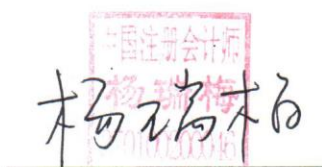 中国注册会计师
杨瑞梅
杨瑞梅